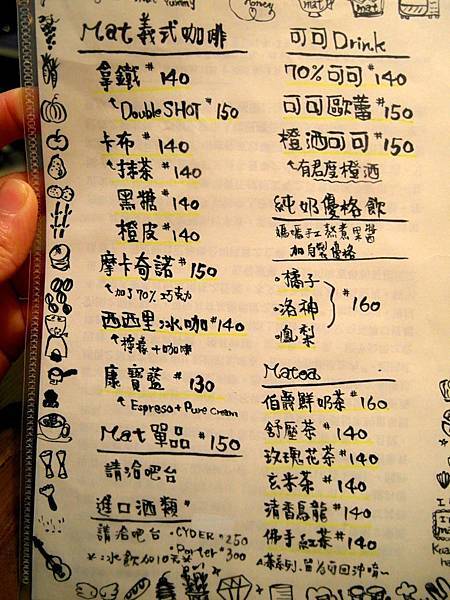 Mat義式咖啡
拿鐵 #140
Double SHOT #150
卡布 #140
抹茶 #140
黑糖 #140
橙皮 #140
摩卡奇諾 #150
加了70%巧克力
西西里冰咖 #140
檸檬+咖啡
康寶藍 #130
Espresso+Pure Cream
Mat單品 #150
請洽吧台
進口酒類#
請洽吧台 · CYDER #250
· Porter #300
冰飲加10元
可可Drink
70%可可 #140
可可歐蕾 #150
橙酒可可 #150
有君度橙酒
純奶優格飲
媽媽手工熬煮果醬
加自製優格
· 橘子
· 洛神 #160
· 鳳梨
Matea
伯爵鮮奶茶 #160
舒壓茶 #140
玫瑰花茶 #140
玄米茶 #140
清香烏龍 #140
佛手紅茶 #140
茶系列皆可回沖唷~